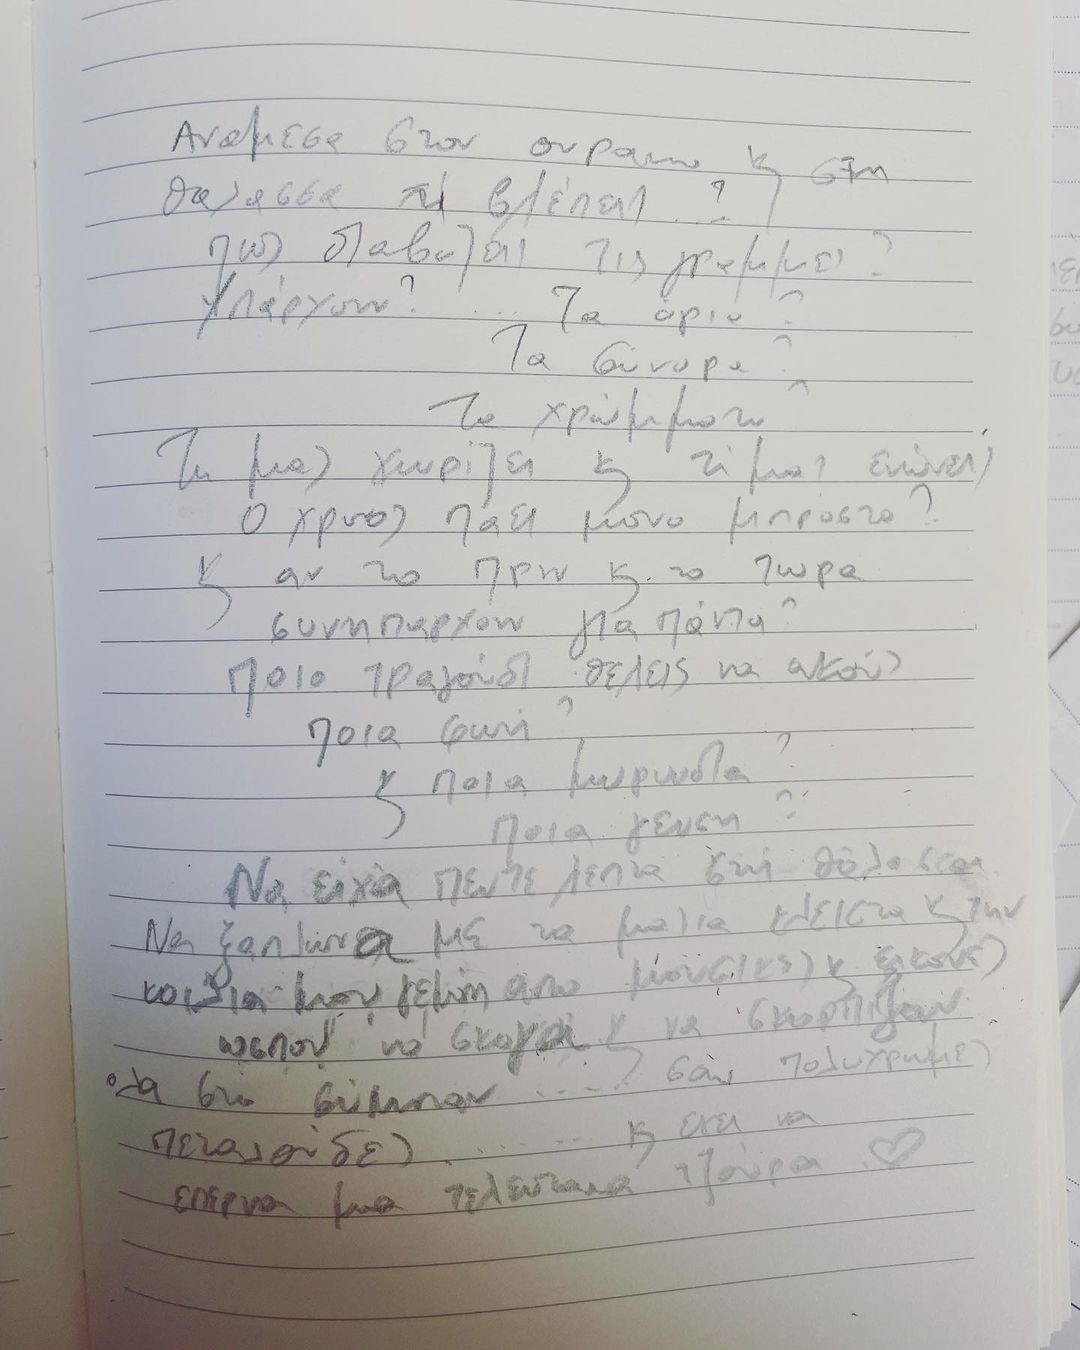 Αναμεσα στον ουρανο κ στη
θαλασσα τί βλέπεις ..?
πως διαβαζεις τις γραμμες?
Υπάρχουν? .... Τα όρια?
Τα σύνορα?
Τα χρώμματα?
Τι μας χωρίζει κ τί μας ενώνει;
Ο χρυσος πάει μόνο μπροστα?
κ αν το πριν κ το τωρα
συνηπαρχουν για πάντα?
Ποιο τραγούδι θελεις να ακούς
Ποια φωνή?
κ ποια μυρωδια?
Ποια γευση?
Να ειχα πεντε λεπτα στη θάλασσα
Να ξαπλώνα με τα ματια κλειστα κ την
κοιλια μου γεμάτη απο μουσικες κ εικονες
ωσπου να σκαγα κ να σκορπιζαν
ολα στο σύμπαν ..... σαν πολυχρωμες
πεταλούδες ......... κ εκει να
επερνα μια τελευταια τζούρα